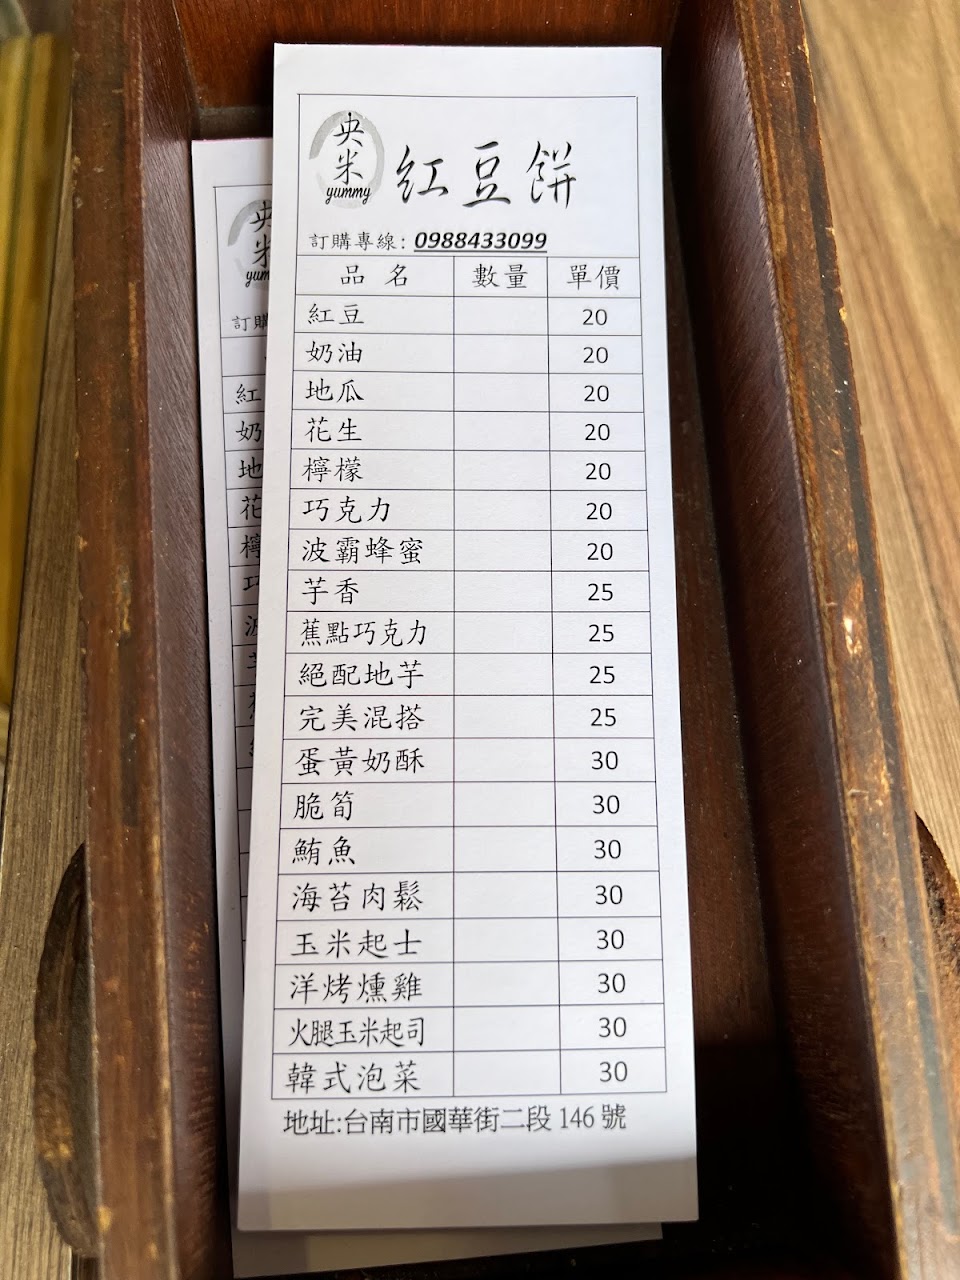 央米
yummy
紅豆餅
訂購專線: 0988433099
品名 數量 單價
紅豆 20
奶油 20
地瓜 20
花生 20
檸檬 20
巧克力 20
波霸蜂蜜 20
芋香 25
蕉點巧克力 25
絕配地芋 25
完美混搭 25
蛋黃奶酥 30
脆筍 30
鮪魚 30
海苔肉鬆 30
玉米起士 30
洋烤燻雞 30
火腿玉米起司 30
韓式泡菜 30
地址:台南市國華街二段 146 號
央米
yum
訂購
紅
奶
地
花
檸
巧